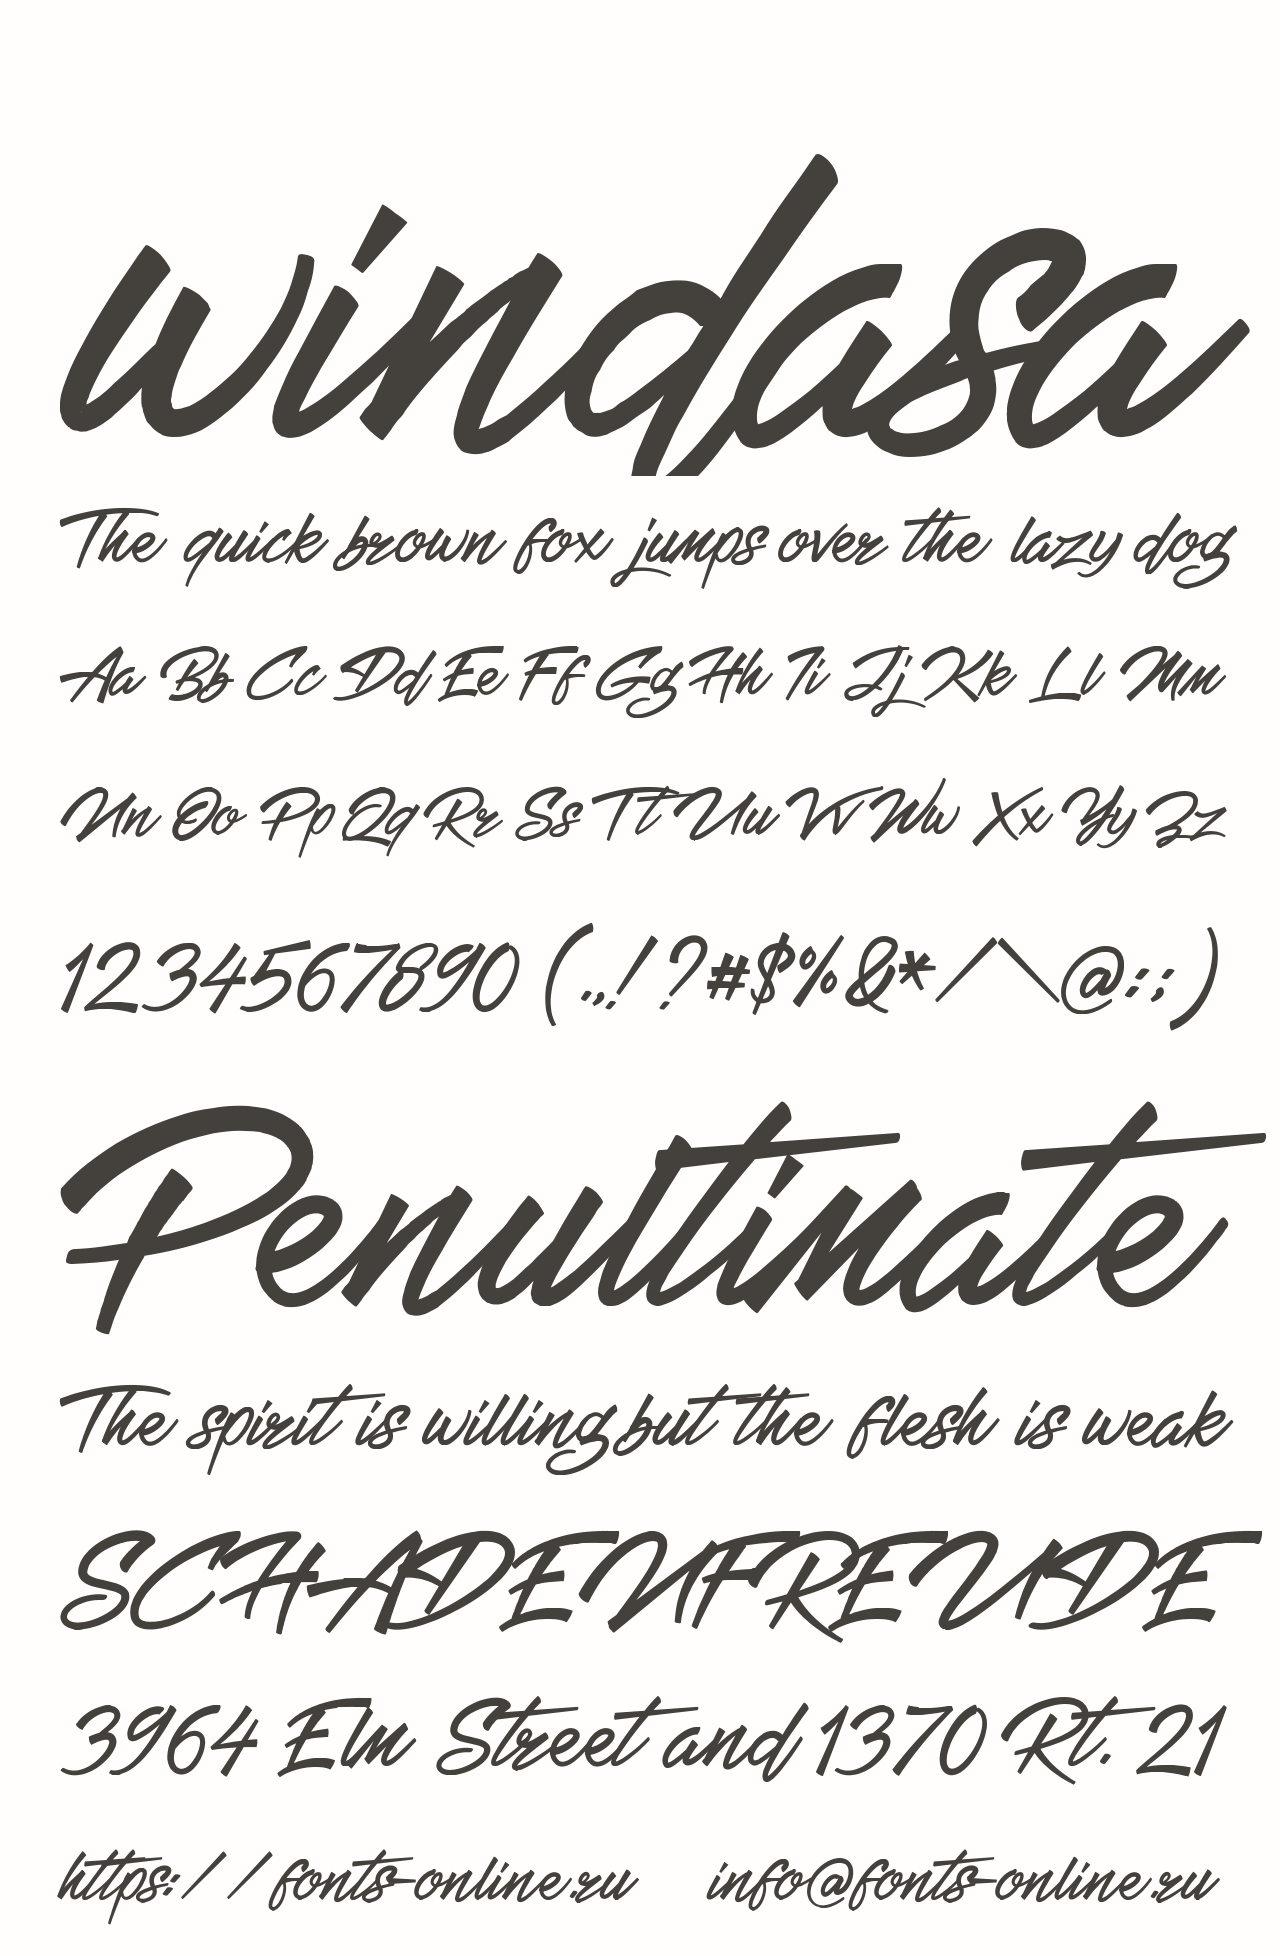 windasa
The quick brown fox jumps over the lazy dog
Aa Bb Cc Dd Ee Ff Gg Hh Ii Jj Kk Ll Mm
Nn Oo Pp Qq Rr Ss Tt Uu Vv Ww Xx Yy Zz
1234567890 (.,!?#$%&*/\@:;)
Penultimate
The spirit is willing but the flesh is weak
SCHADENFREUDE
3964 Elm Street and 1370 Rt. 21
https://fonts-online.ru info@fonts-online.ru